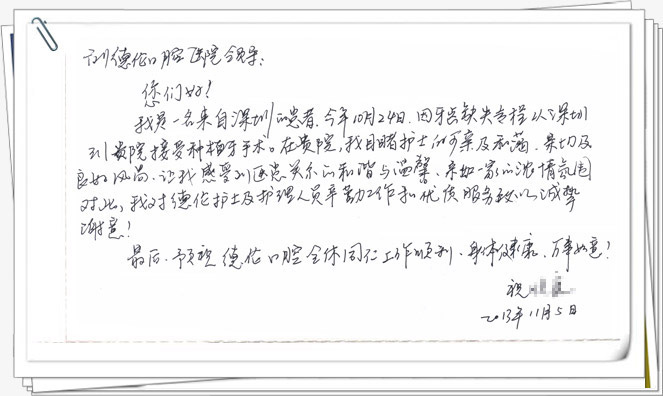 德伦口腔医院领导:
您们好!
我是一名来自深圳的患者,今年10月24日,因牙齿缺失专程从深圳
到贵院接受种植牙手术。在贵院,我目睹护士的可亲及和蔼,亲切及
良好风尚,让我感受到医患关系的和谐与温馨、亲如一家的浓情氛围
对此,我对德伦护士及护理人员辛勤工作和优质服务致以诚挚
谢意!
最后,预祝德伦口腔全体同仁工作顺利、身体健康、万事如意!
祝
2013年11月5日